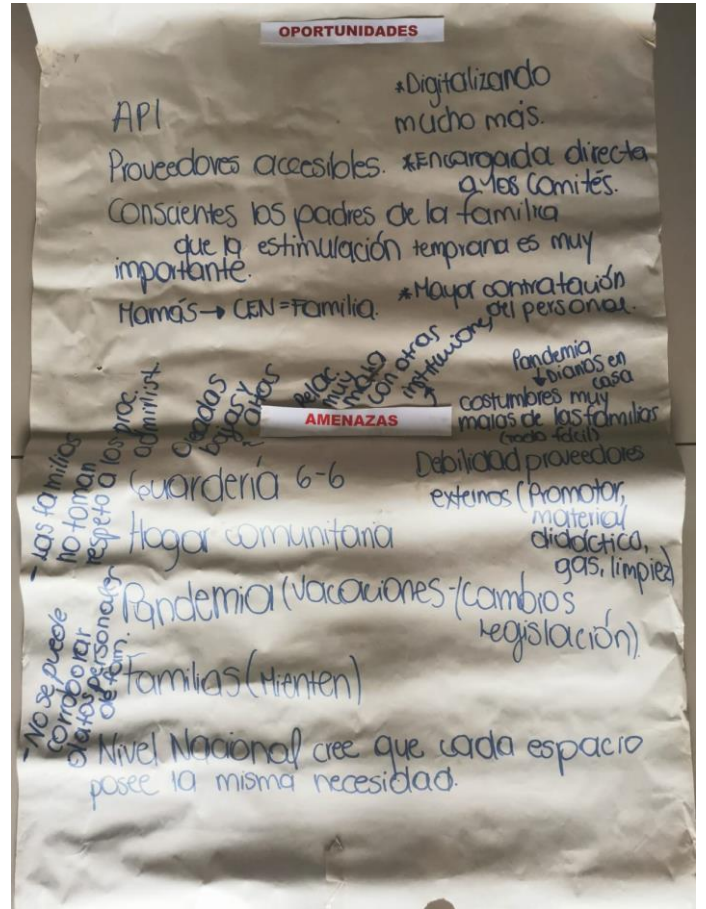 OPORTUNIDADES
API
*Digitalizando
mucho más.
Proveedores accesibles.
*Encargada directa
a los Comités.
Conscientes los padres de la familia
que la estimulación temprana es muy
importante.
Mamás → CEN = Familia.
*Mayor contratación
del personal.
AMENAZAS
- Las familias
no toman
respeto a los proc.
administ.
Oleadas
bajas y
altas
Relac.
muy
mala
con otras
instituciones
Pandemia
↓ Dianos en
casa
costumbres muy
malas de las familias
(todo fácil)
Guardería 6-6
Debilidad proveedores
externos (Promotor,
material
didáctico,
gas, limpiez)
Hogar comunitario
Pandemia (Vacaciones - (cambios
legislación)
- No se puede
corroborar
datos personales
de fam.
Familias (Mienten)
Nivel Nacional cree que cada espacio
posee la misma necesidad.